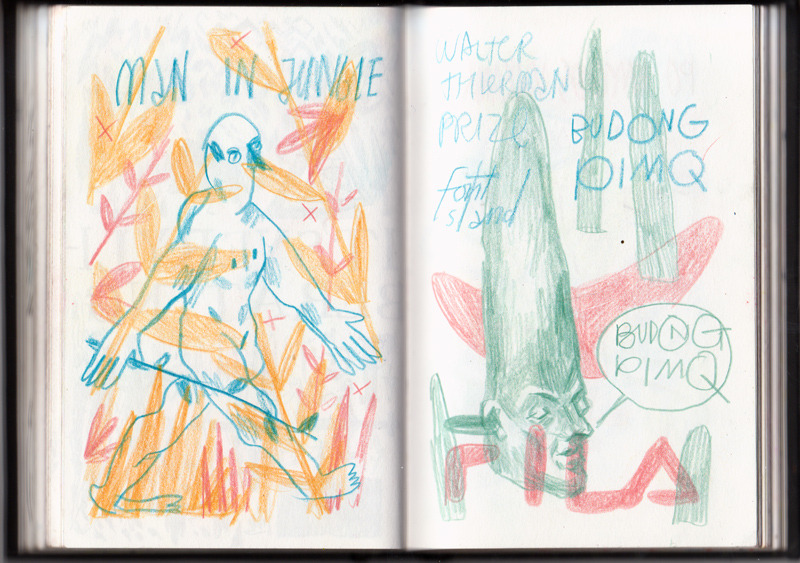 MAN IN JUNGLE
WALTER
THIERMAN
PRIZE
Font
island
BUDONG
PIMQ
BUDONG
PIMQ
FILA